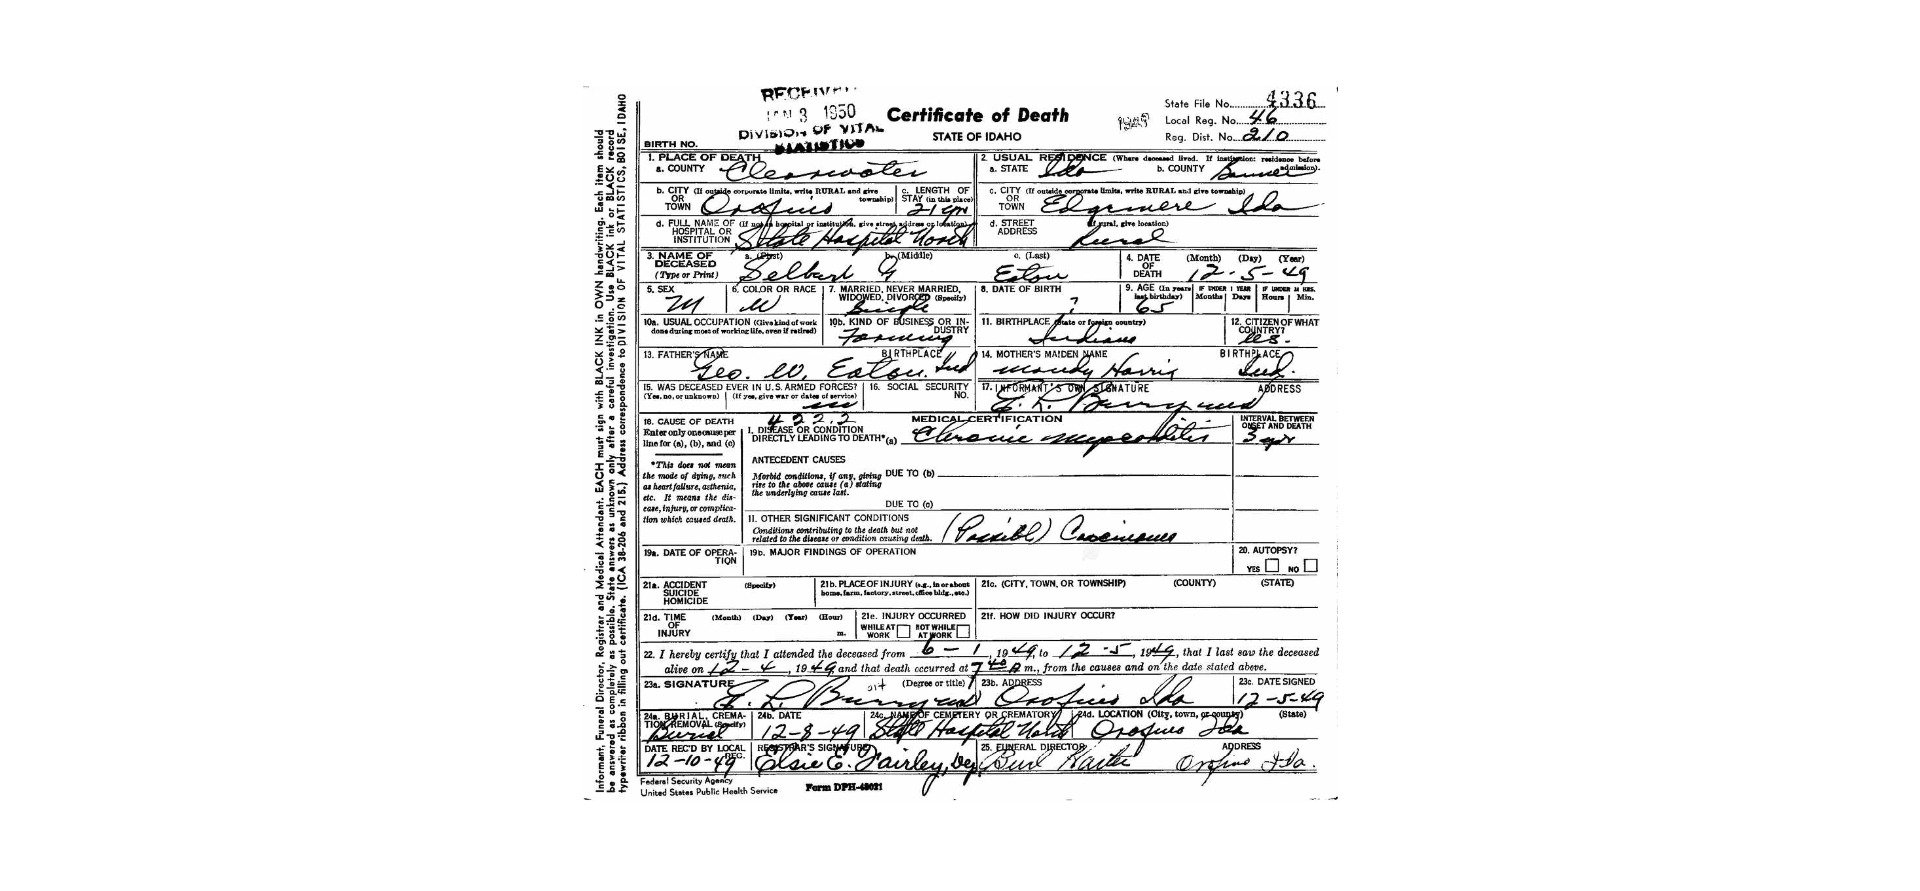 RECEIVED
JAN 3 1950
DIVISION OF VITAL
STATISTICS
Certificate of Death
STATE OF IDAHO
1949
State File No. 4336
Local Reg. No. 46
Reg. Dist. No. 210
BIRTH NO.
1. PLACE OF DEATH
a. COUNTY Clearwater
2. USUAL RESIDENCE (Where deceased lived. If institution: residence before admission).
a. STATE Ida b. COUNTY Bonner
b. CITY (If outside corporate limits, write RURAL and give township)
OR
TOWN Orofino
c. LENGTH OF STAY (in this place)
21 yr
c. CITY (If outside corporate limits, write RURAL and give township)
OR
TOWN Edgemere Ida
d. FULL NAME OF (If not in hospital or institution, give street address or location)
HOSPITAL OR
INSTITUTION State Hospital North
d. STREET (If rural, give location)
ADDRESS Rural
3. NAME OF DECEASED (Type or Print)
a. (First) b. (Middle) c. (Last)
Delbert G Eaton
4. DATE OF DEATH (Month) (Day) (Year)
12-5-49
5. SEX
M
6. COLOR OR RACE
W
7. MARRIED, NEVER MARRIED, WIDOWED, DIVORCED (Specify)
Single
8. DATE OF BIRTH
?
9. AGE (In years last birthday)
65
IF UNDER 1 YEAR
Months Days
IF UNDER 24 HRS.
Hours Min.
10a. USUAL OCCUPATION (Give kind of work done during most of working life, even if retired)
10b. KIND OF BUSINESS OR INDUSTRY
Farming
11. BIRTHPLACE (State or foreign country)
Indiana
12. CITIZEN OF WHAT COUNTRY?
13. FATHER'S NAME BIRTHPLACE
Geo. W. Eaton Ind
14. MOTHER'S MAIDEN NAME BIRTHPLACE
Mandy Harris Ind.
15. WAS DECEASED EVER IN U.S. ARMED FORCES?
(Yes, no, or unknown) (If yes, give war or dates of service)
16. SOCIAL SECURITY NO.
17. INFORMANT'S OWN SIGNATURE ADDRESS
18. CAUSE OF DEATH
Enter only one cause per line for (a), (b), and (c)
*This does not mean the mode of dying, such as heart failure, asthenia, etc. It means the disease, injury, or complication which caused death.
422.2
MEDICAL CERTIFICATION
I. DISEASE OR CONDITION
DIRECTLY LEADING TO DEATH*(a) Chronic myocarditis
INTERVAL BETWEEN ONSET AND DEATH
3 yr
ANTECEDENT CAUSES
Morbid conditions, if any, giving rise to the above cause (a) stating the underlying cause last.
DUE TO (b)
DUE TO (c)
II. OTHER SIGNIFICANT CONDITIONS
Conditions contributing to the death but not related to the disease or condition causing death.
(Possible) Carcinoma
19a. DATE OF OPERATION
19b. MAJOR FINDINGS OF OPERATION
20. AUTOPSY?
YES NO
21a. ACCIDENT SUICIDE HOMICIDE (Specify)
21b. PLACE OF INJURY (e.g., in or about home, farm, factory, street, office bldg., etc.)
21c. (CITY, TOWN, OR TOWNSHIP) (COUNTY) (STATE)
21d. TIME OF INJURY (Month) (Day) (Year) (Hour) m.
21e. INJURY OCCURRED
WHILE AT WORK NOT WHILE AT WORK
21f. HOW DID INJURY OCCUR?
22. I hereby certify that I attended the deceased from 6-1, 1949, to 12-5, 1949, that I last saw the deceased
alive on 12-4, 1949 and that death occurred at 7 40 A m., from the causes and on the date stated above.
23a. SIGNATURE (Degree or title)
23b. ADDRESS
Orofino Ida
23c. DATE SIGNED
12-5-49
24a. BURIAL, CREMATION, REMOVAL (Specify)
Burial
24b. DATE
12-8-49
24c. NAME OF CEMETERY OR CREMATORY
State Hospital North
24d. LOCATION (City, town, or county) (State)
Orofino Ida
DATE REC'D BY LOCAL REG.
12-10-49
REGISTRAR'S SIGNATURE
Elsie E. Fairley, Dep
25. FUNERAL DIRECTOR ADDRESS
Orofino Ida.
Federal Security Agency
United States Public Health Service
Form DPH-48021
Informant, Funeral Director, Registrar and Medical Attendant. EACH must sign with BLACK INK in OWN handwriting. Each item should
be answered as completely as possible. State answers as unknown only after a careful investigation. Use BLACK ink or BLACK record
typewriter ribbon in filling out certificate. (ICA 38-206 and 215.) Address correspondence to DIVISION OF VITAL STATISTICS, BOISE, IDAHO